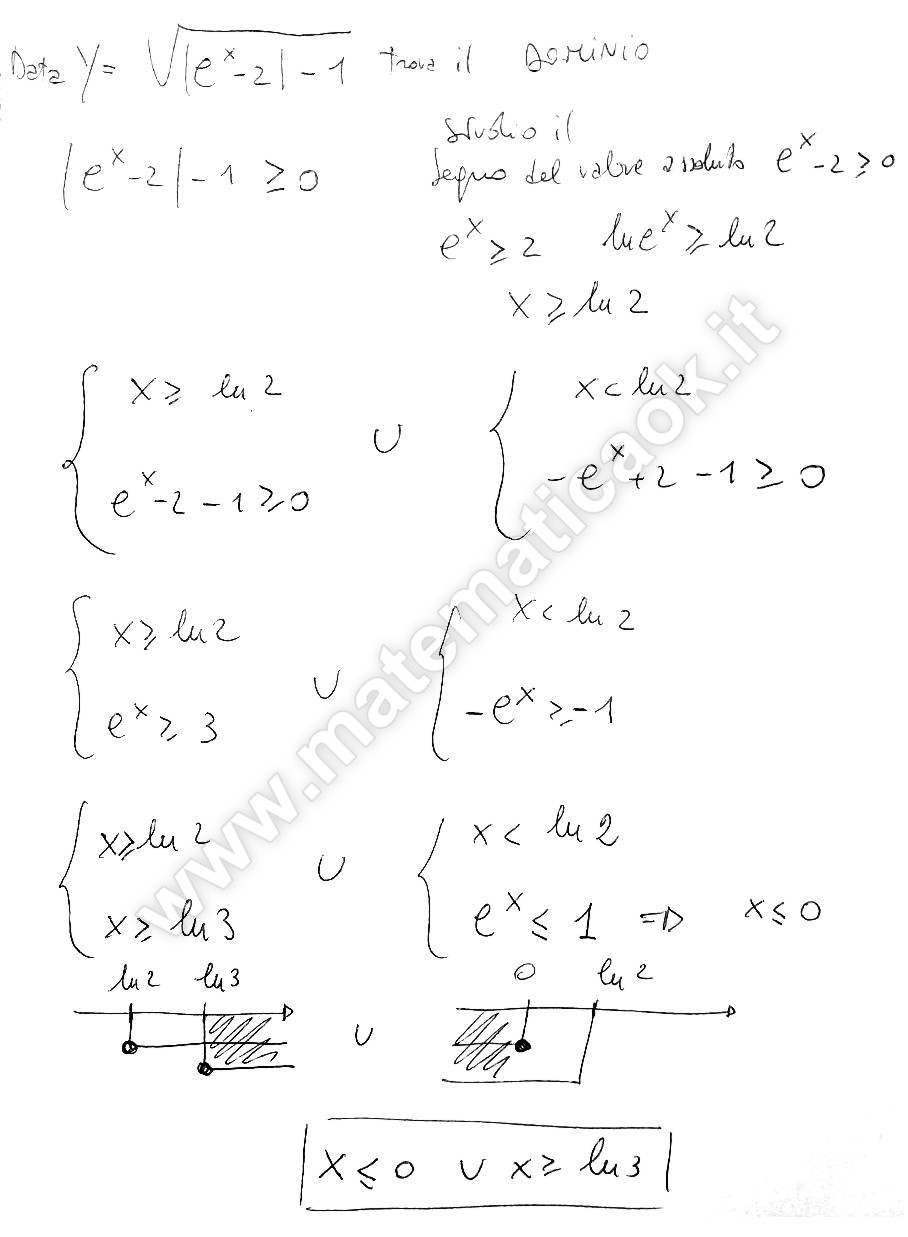 Data y = √|e^x - 2| - 1 trova il DOMINIO
|e^x - 2| - 1 ≥ 0
studio il
segno del valore assoluto e^x - 2 ≥ 0
e^x ≥ 2 ln e^x ≥ ln 2
x ≥ ln 2
{ x ≥ ln 2 ∪ { x < ln 2
e^x - 2 - 1 ≥ 0 -e^x + 2 - 1 ≥ 0
{ x ≥ ln 2 ∪ { x < ln 2
e^x ≥ 3 -e^x ≥ -1
{ x ≥ ln 2 ∪ { x < ln 2
x ≥ ln 3 e^x ≤ 1 ⇒ x ≤ 0
ln 2 ln 3 ∪ 0 ln 2
x ≤ 0 ∪ x ≥ ln 3
www.matematicaok.it